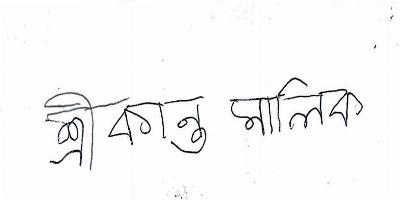 শ্রীকান্ত মালিক